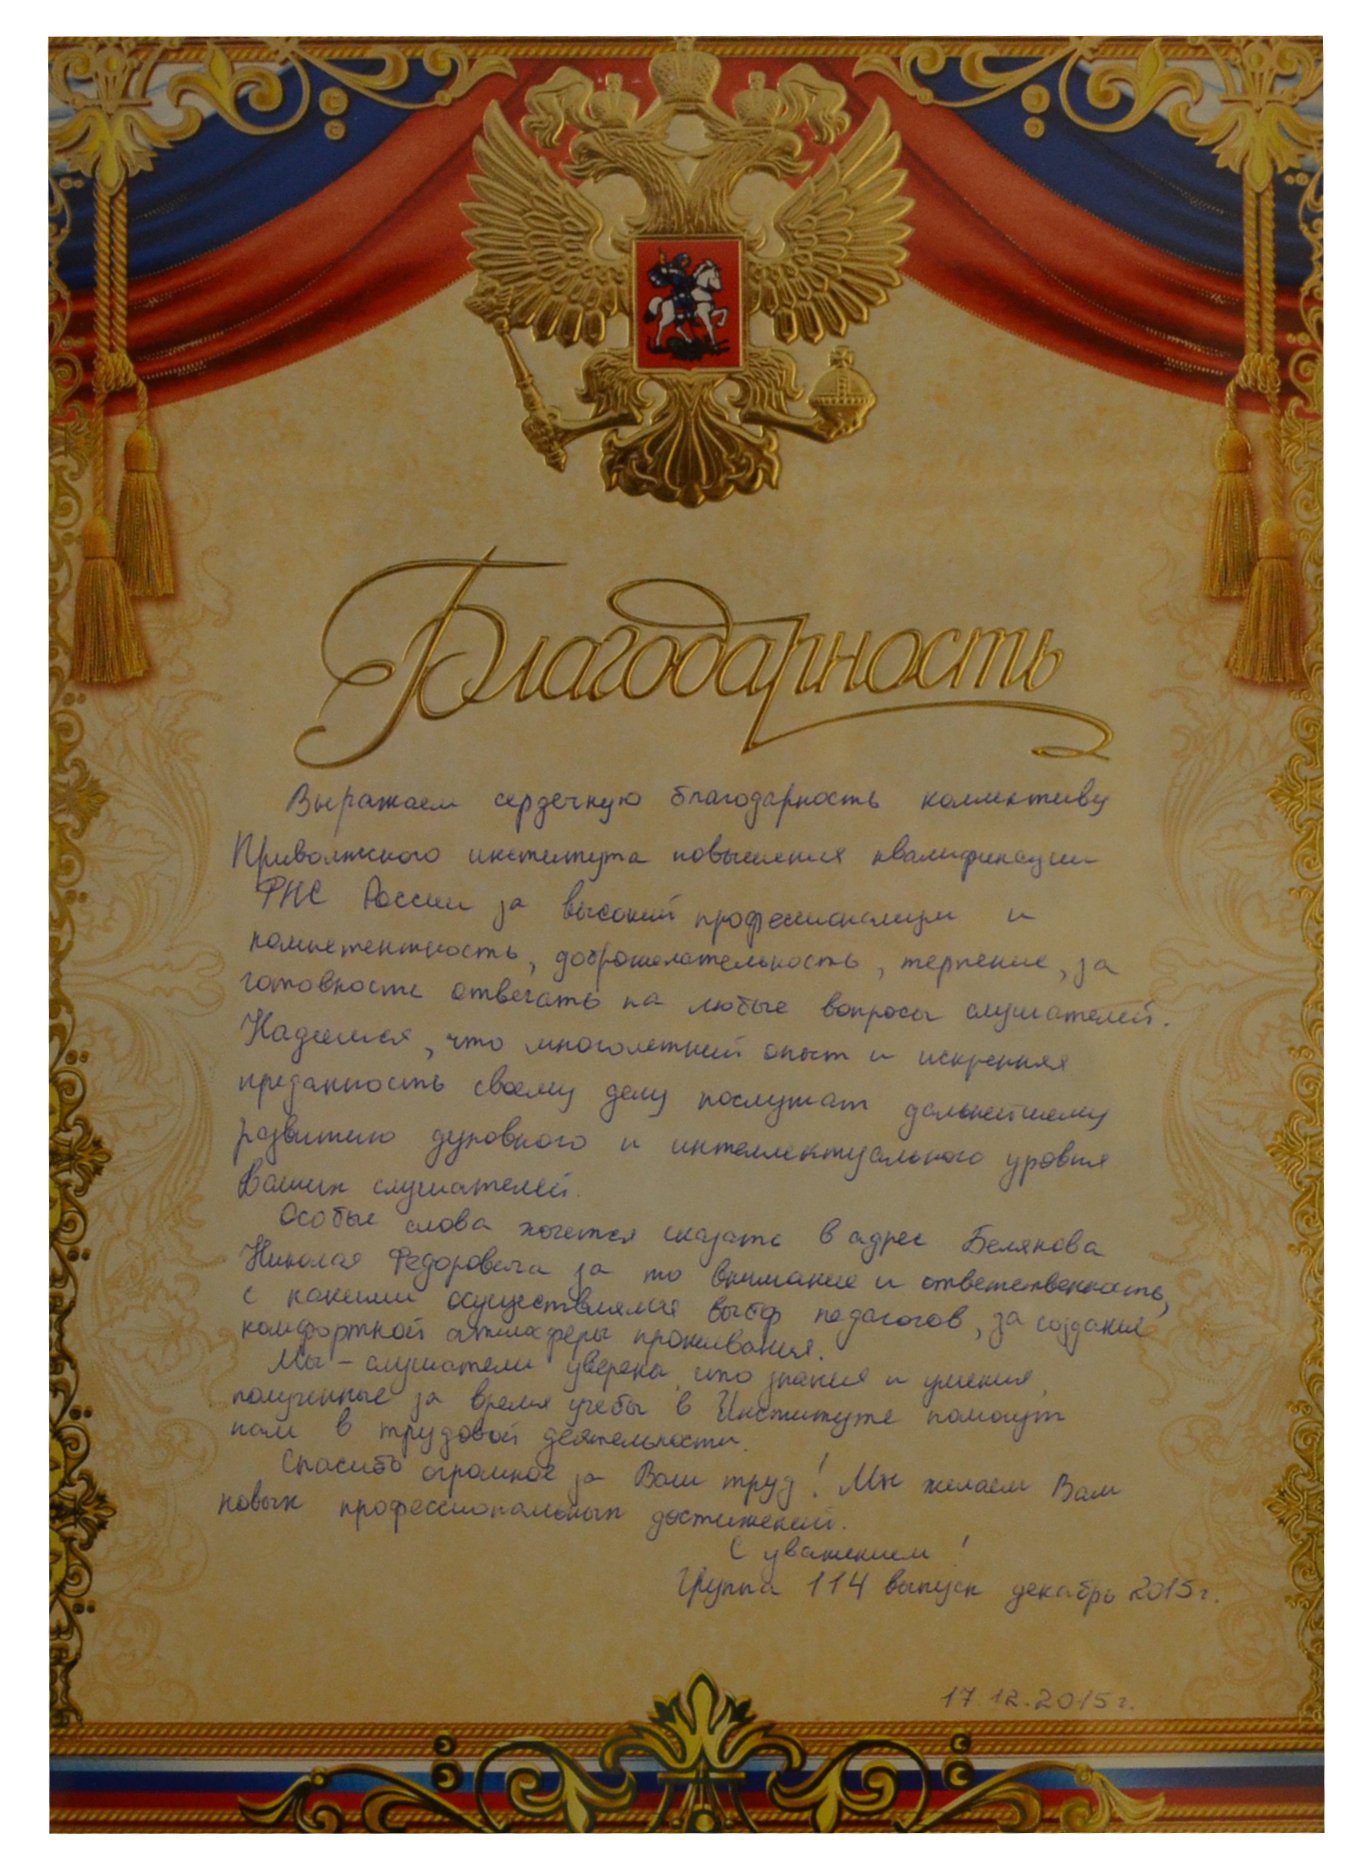 Благодарность
Выражаем сердечную благодарность коллективу
Приволжского института повышения квалификации
ФНС России за высокий профессионализм и
компетентность, доброжелательность, терпение, за
готовность отвечать на любые вопросы слушателей.
Надеемся, что многолетний опыт и искренняя
преданность своему делу послужат дальнейшему
развитию духовного и интеллектуального уровня
Ваших слушателей.
Особые слова хочется сказать в адрес Белякова
Николая Федоровича за то внимание и ответственность,
с какими осуществлялся выбор педагогов, за создание
комфортной атмосферы проживания.
Мы – слушатели уверены, что знания и умения,
полученные за время учебы в Институте помогут
нам в трудовой деятельности.
Спасибо огромное за Ваш труд! Мы желаем Вам
новых профессиональных достижений.
С уважением!
Группа 114 выпуск декабрь 2015г.
17.12.2015г.